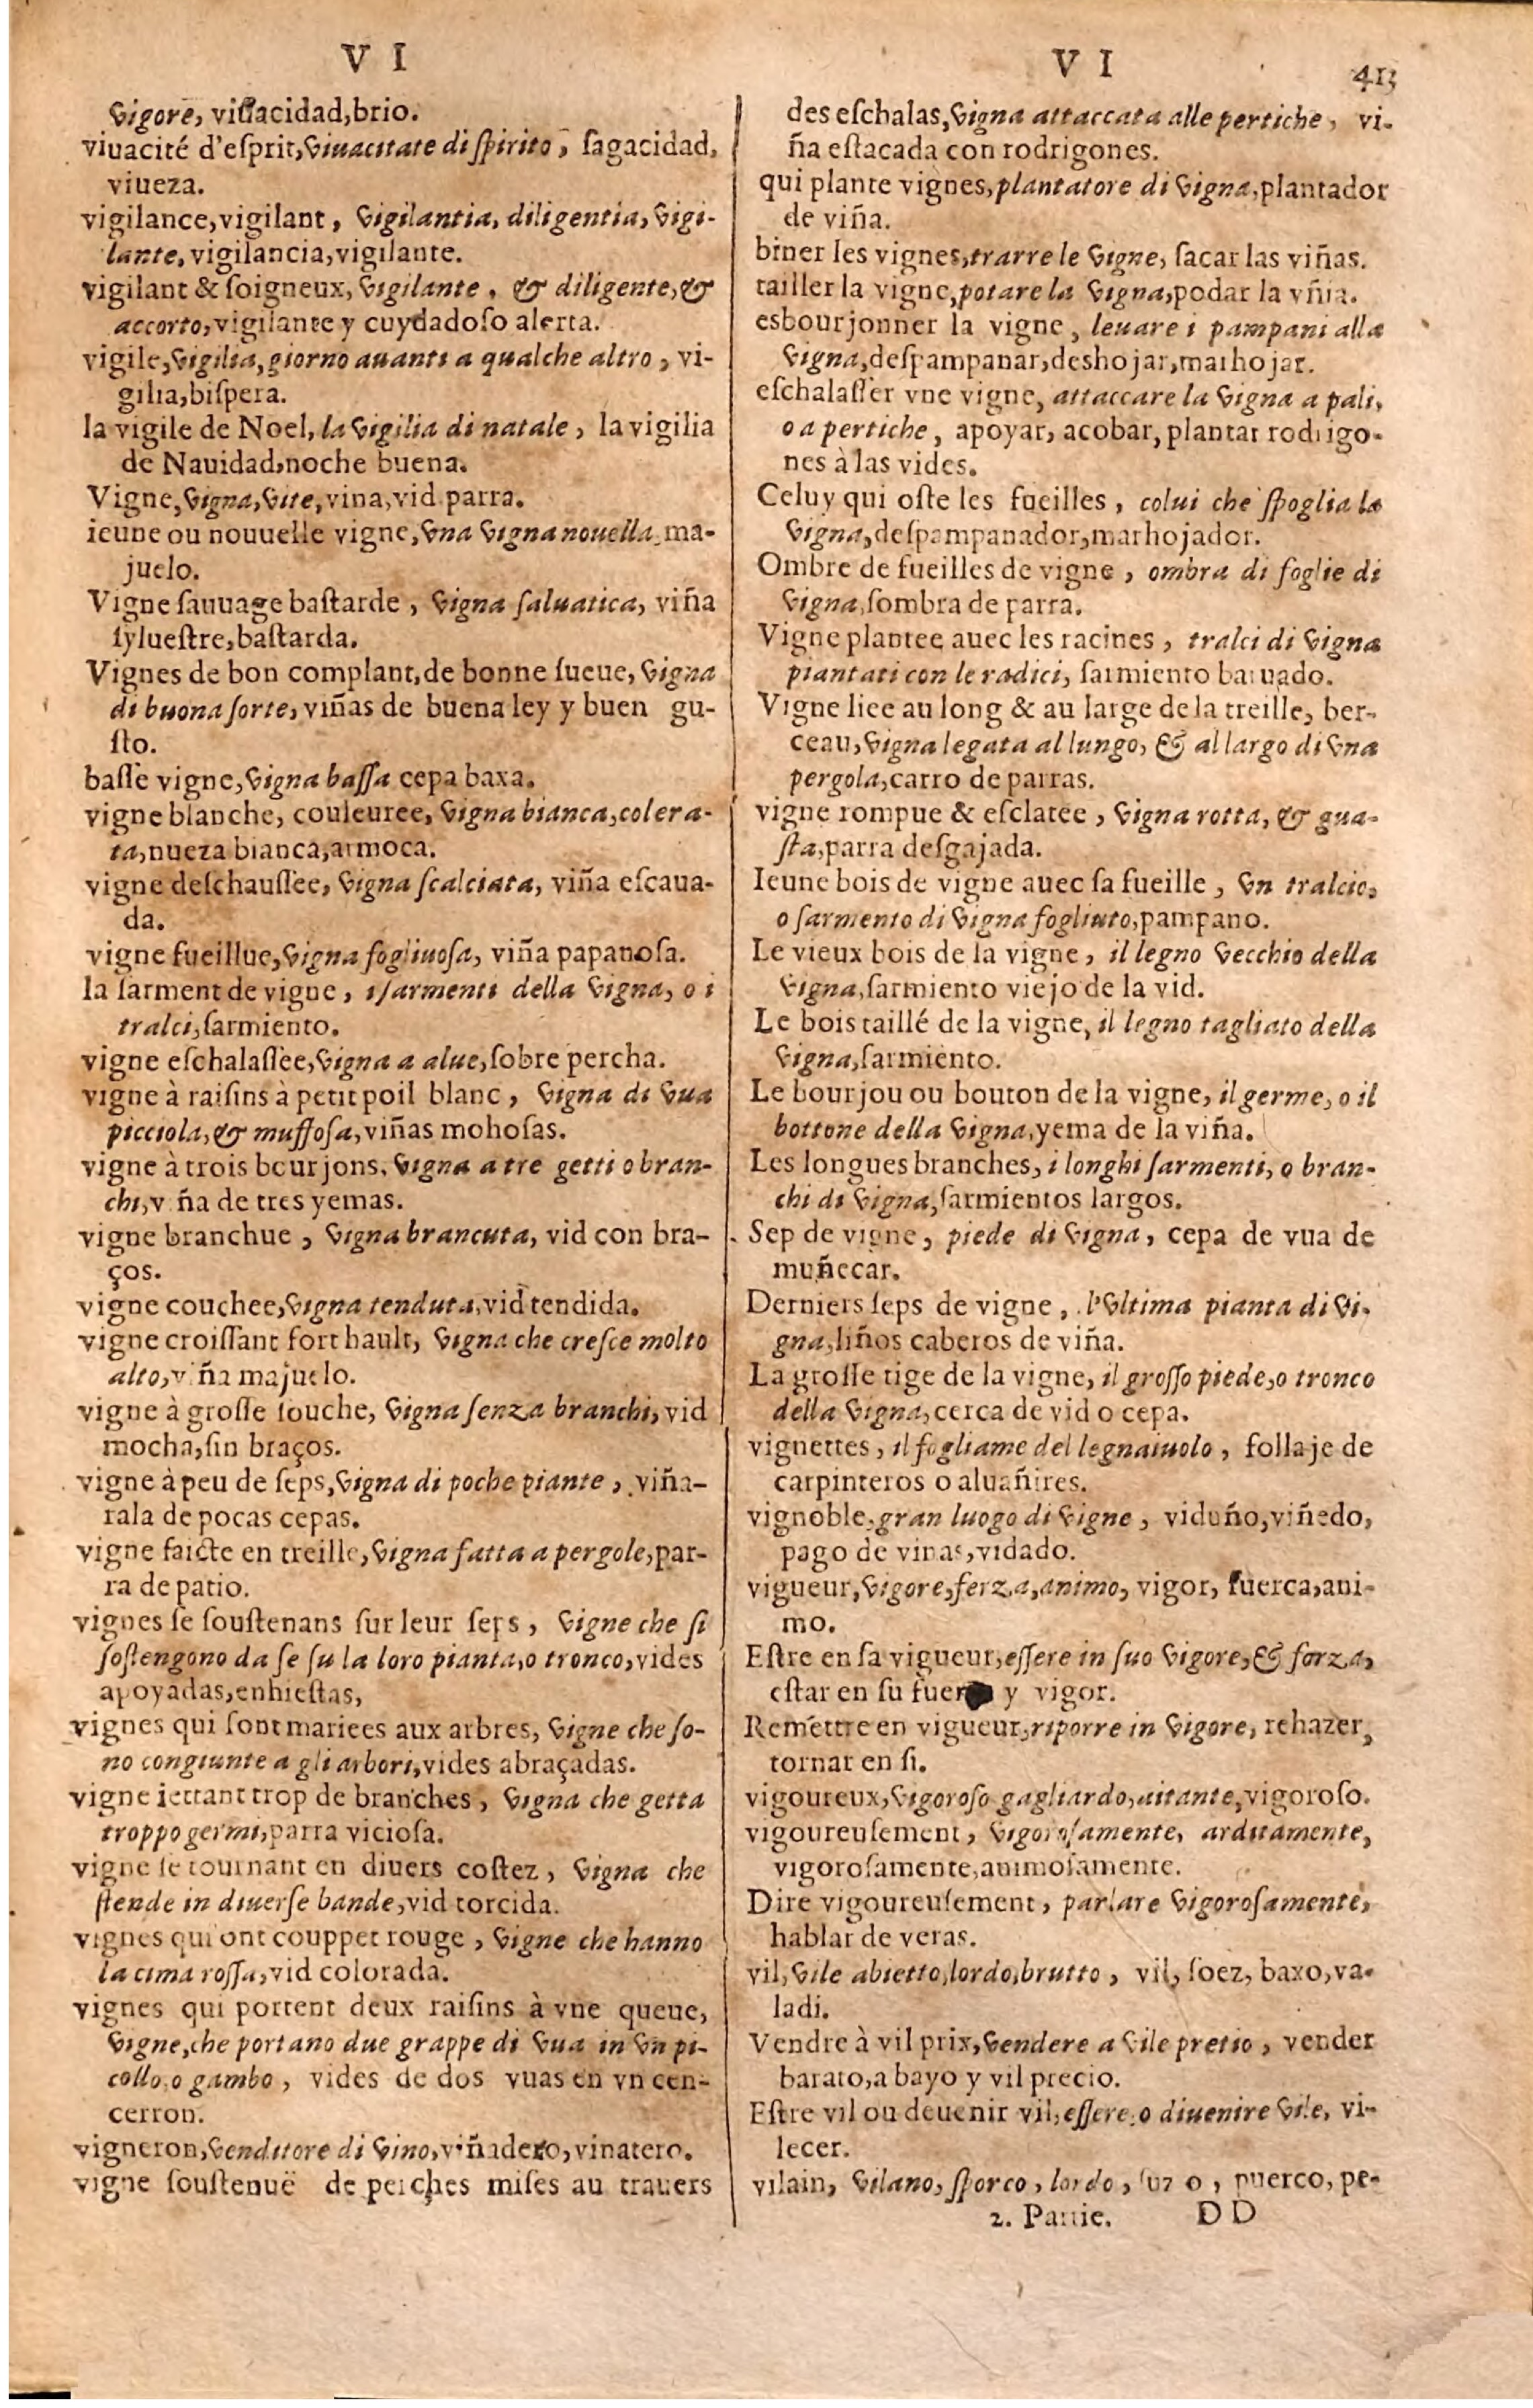 V I
vigore, viuacidad, brio.
viuacité d'esprit, viuacitate di spirito, sagacidad,
viueza.
vigilance, vigilant, vigilantia, diligentia, vigi-
lante, vigilancia, vigilante.
vigilant & soigneux, vigilante, & diligente, &
accorto, vigilante y cuydadoso alerta.
vigile, vigilia, giorno auanti a qualche altro, vi-
gilia, bispera.
la vigile de Noel, la vigilia di natale, la vigilia
de Nauidad, noche buena.
Vigne, vigna, vite, vina, vid parra.
ieune ou nouuelle vigne, vna vigna nouella, ma-
juelo.
Vigne sauuage bastarde, vigna saluatica, viña
syluestre, bastarda.
Vignes de bon complant, de bonne sueue, vigna
di buona sorte, viñas de buena ley y buen gu-
sto.
basse vigne, vigna bassa cepa baxa.
vigne blanche, couleuree, vigna bianca, colera-
ta, nueza bianca, armoca.
vigne deschaussee, vigna scalciata, viña escaua-
da.
vigne fueillue, vigna fogliuosa, viña papanosa.
la sarment de vigne, i sarmenti della vigna, o i
tralci, sarmiento.
vigne eschalassee, vigna a alue, sobre percha.
vigne à raisins à petit poil blanc, vigna di vua
picciola, & muffosa, viñas mohosas.
vigne à trois bourjons, vigna a tre getti o bran-
chi, v ña de tres yemas.
vigne branchue, vigna brancuta, vid con bra-
ços.
vigne couchee, vigna tenduta, vid tendida.
vigne croissant fort hault, vigna che cresce molto
alto, v ña majuelo.
vigne à grosse souche, vigna senza branchi, vid
mocha, sin braços.
vigne à peu de seps, vigna di poche piante, viña-
rala de pocas cepas.
vigne faicte en treille, vigna fatta a pergole, par-
ra de patio.
vignes se soustenans sur leur seps, vigne che si
sostengono da se su la loro pianta, o tronco, vides
apoyadas, enhiestas,
vignes qui sont mariees aux arbres, vigne che so-
no congiunte a gli arbori, vides abraçadas.
vigne iettant trop de branches, vigna che getta
troppo germi, parra viciosa.
vigne se tournant en diuers costez, vigna che
stende in diuerse bande, vid torcida.
vignes qui ont couppet rouge, vigne che hanno
la cima rossa, vid colorada.
vignes qui portent deux raisins à vne queue,
vigne, che portano due grappe di vua in vn pi-
collo o gambo, vides de dos vuas en vn cen-
cerron.
vigneron, venditore di vino, viñadero, vinatero.
vigne soustenuë de perches mises au trauers
V I 413
des eschalas, vigna attaccata alle pertiche, vi-
ña estacada con rodrigones.
qui plante vignes, plantatore di vigna, plantador
de viña.
biner les vignes, trarre le vigne, sacar las viñas.
tailler la vigne, potare la vigna, podar la vñia.
esbourjonner la vigne, leuare i pampani alla
vigna, despampanar, deshojar, marhojar.
eschalasser vne vigne, attaccare la vigna a pali,
o a pertiche, apoyar, acobar, plantar rodrigo-
nes à las vides.
Celuy qui oste les fueilles, colui che spoglia la
vigna, despampanador, marhojador.
Ombre de fueilles de vigne, ombra di foglie di
vigna, sombra de parra.
Vigne plantee auec les racines, tralci di vigna
piantati con le radici, sarmiento baruado.
Vigne liee au long & au large de la treille, ber-
ceau, vigna legata al lungo, & al largo di vna
pergola, carro de parras.
vigne rompue & esclatee, vigna rotta, & gua-
sta, parra desgajada.
Ieune bois de vigne auec sa fueille, vn tralcio,
o sarmento di vigna fogliuto, pampano.
Le vieux bois de la vigne, il legno vecchio della
vigna, sarmiento viejo de la vid.
Le bois taillé de la vigne, il legno tagliato della
vigna, sarmiento.
Le bourjou ou bouton de la vigne, il germe, o il
bottone della vigna, yema de la viña.
Les longues branches, i longhi sarmenti, o bran-
chi di vigna, sarmientos largos.
Sep de vigne, piede di vigna, cepa de vua de
muñecar.
Derniers seps de vigne, l'vltima pianta di vi-
gna, liños caberos de viña.
La grosse tige de la vigne, il grosso piede, o tronco
della vigna, cerca de vid o cepa.
vignettes, il fogliame del legnaiuolo, follaje de
carpinteros o aluañires.
vignoble, gran luogo di vigne, viduño, viñedo,
pago de vinas, vidado.
vigueur, vigore, ferza, animo, vigor, fuerca, ani-
mo.
Estre en sa vigueur, essere in suo vigore, & forza,
estar en su y vigor.
Remettre en vigueur, riporre in vigore, rehazer,
tornar en si.
vigoureux, vigoroso gagliardo, aitante, vigoroso.
vigoureusement, vigorosamente, arditamente,
vigorosamente, animosamente.
Dire vigoureusement, parlare vigorosamente,
hablar de veras.
vil, vile abietto, lordo, brutto, vil, soez, baxo, va-
ladi.
Vendre à vil prix, vendere a vile pretio, vender
barato, a bayo y vil precio.
Estre vil ou deuenir vil, essere, o diuenire vile, vi-
lecer.
vilain, vilano, sporco, lordo, suz o, puerco, pe-
2. Partie. D D